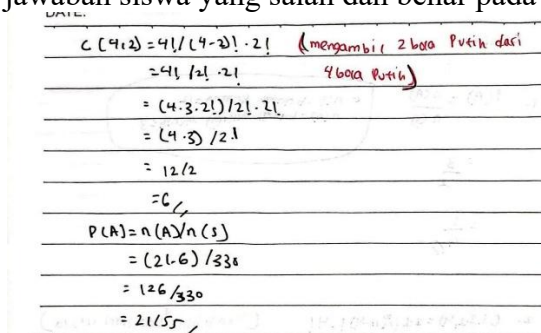 jawaban siswa yang salah dan benar pada
DATE:
C(4,2) = 4! / (4-2)! · 2! (mengambil 2 bola Putih dari
= 4! / 2! · 2! 4 bola Putih)
= (4·3·2!) / 2! · 2!
= (4·3) / 2!
= 12/2
= 6
P(A) = n(A)/n(S)
= (21·6) / 330
= 126/330
= 21/55